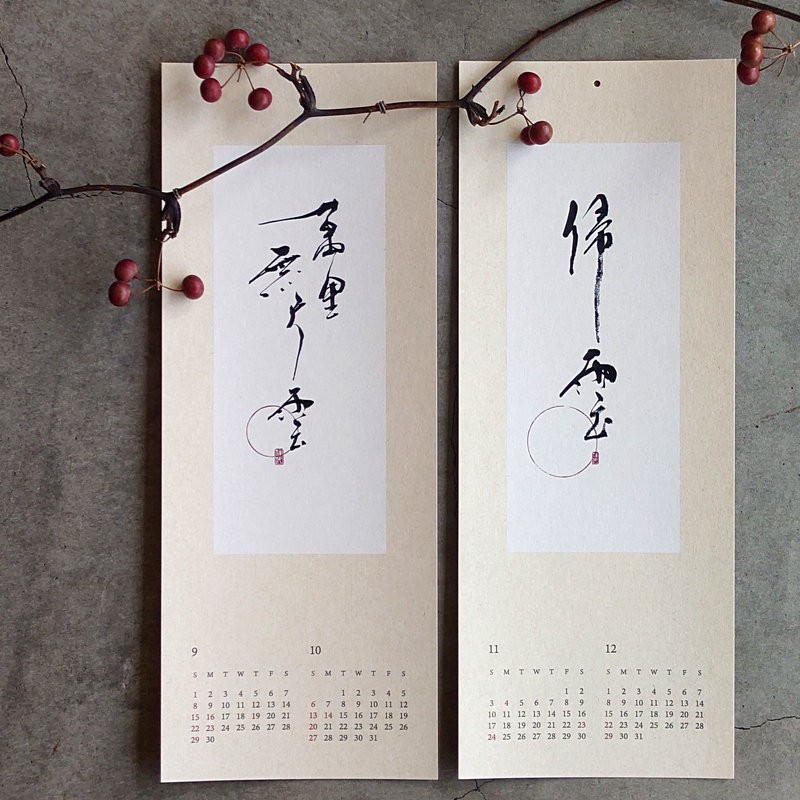 萬里
無片
雲
9
S M T W T F S
1 2 3 4 5 6 7
8 9 10 11 12 13 14
15 16 17 18 19 20 21
22 23 24 25 26 27 28
29 30
10
S M T W T F S
1 2 3 4 5
6 7 8 9 10 11 12
13 14 15 16 17 18 19
20 21 22 23 24 25 26
27 28 29 30 31
帰
雲
11
S M T W T F S
1 2
3 4 5 6 7 8 9
10 11 12 13 14 15 16
17 18 19 20 21 22 23
24 25 26 27 28 29 30
12
S M T W T F S
1 2 3 4 5 6 7
8 9 10 11 12 13 14
15 16 17 18 19 20 21
22 23 24 25 26 27 28
29 30 31